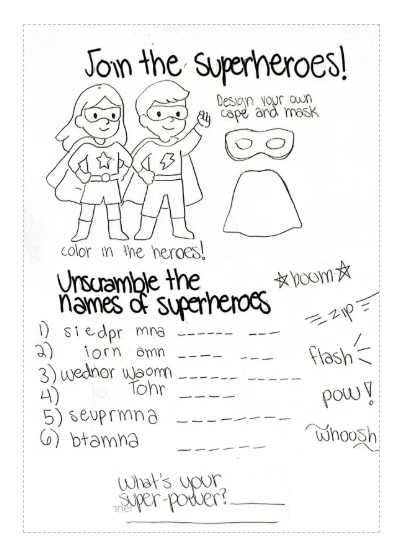 Join the superheroes!
Design your own
cape and mask
color in the heroes!
Unscramble the
names of superheroes
☆boom☆
zip
flash
pow!
whoosh
1) siedpr mna ------ ---
2) iorn amn ---- ---
3) wednor waomn ------ -----
4) Tohr ----
5) seuprmna --------
6) btamna ------
What's your
super-power?